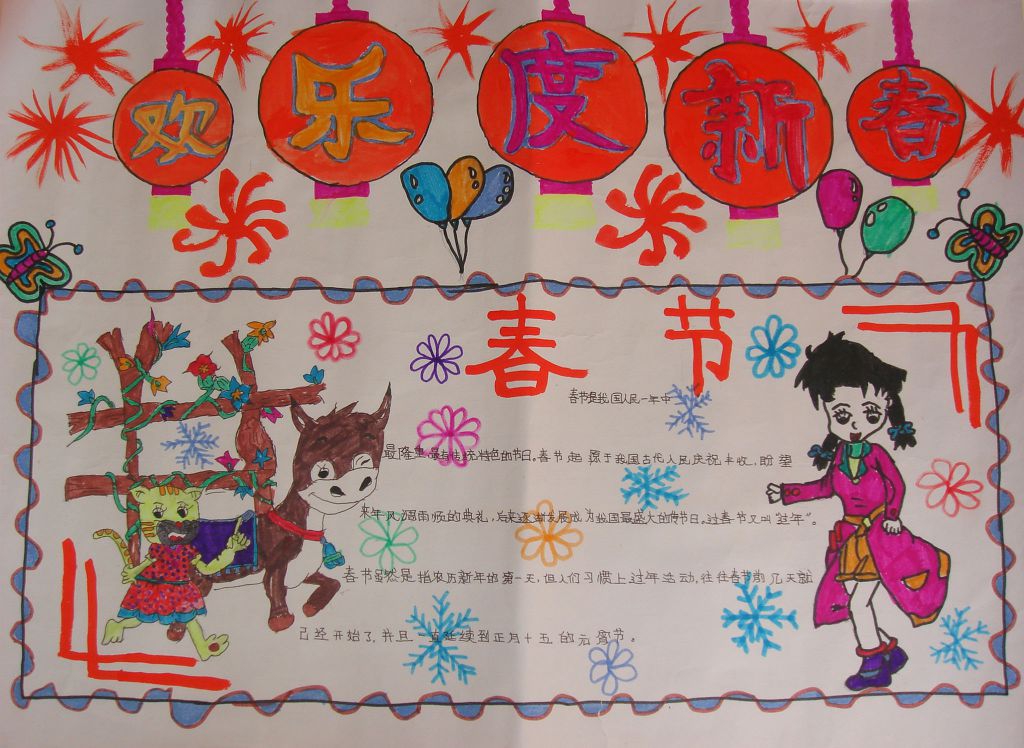 欢乐度新春
春节
春节是我国人民一年中
最隆重最有传统特色的节日。春节起源于我国古代人民庆祝丰收,盼望
来年风调雨顺的典礼,后来逐渐发展成为我国最盛大的传节日。过春节又叫“过年”。
春节虽然是指农历新年的第一天,但人们习惯上过年活动,往往春节前几天就
已经开始了,并且一直延续到正月十五的元宵节。